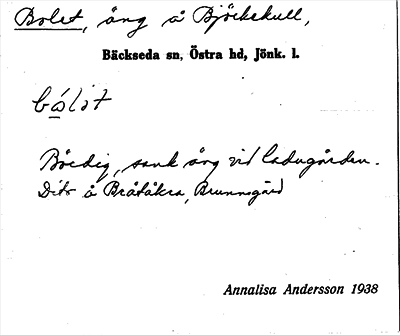 Bolet, äng å Björkekull,
Bäckseda sn, Östra hd, Jönk. l.
bólit
Bördig, sank äng vid ladugården.
Dito å Bråtåkra, Brunnsgärd
Annalisa Andersson 1938